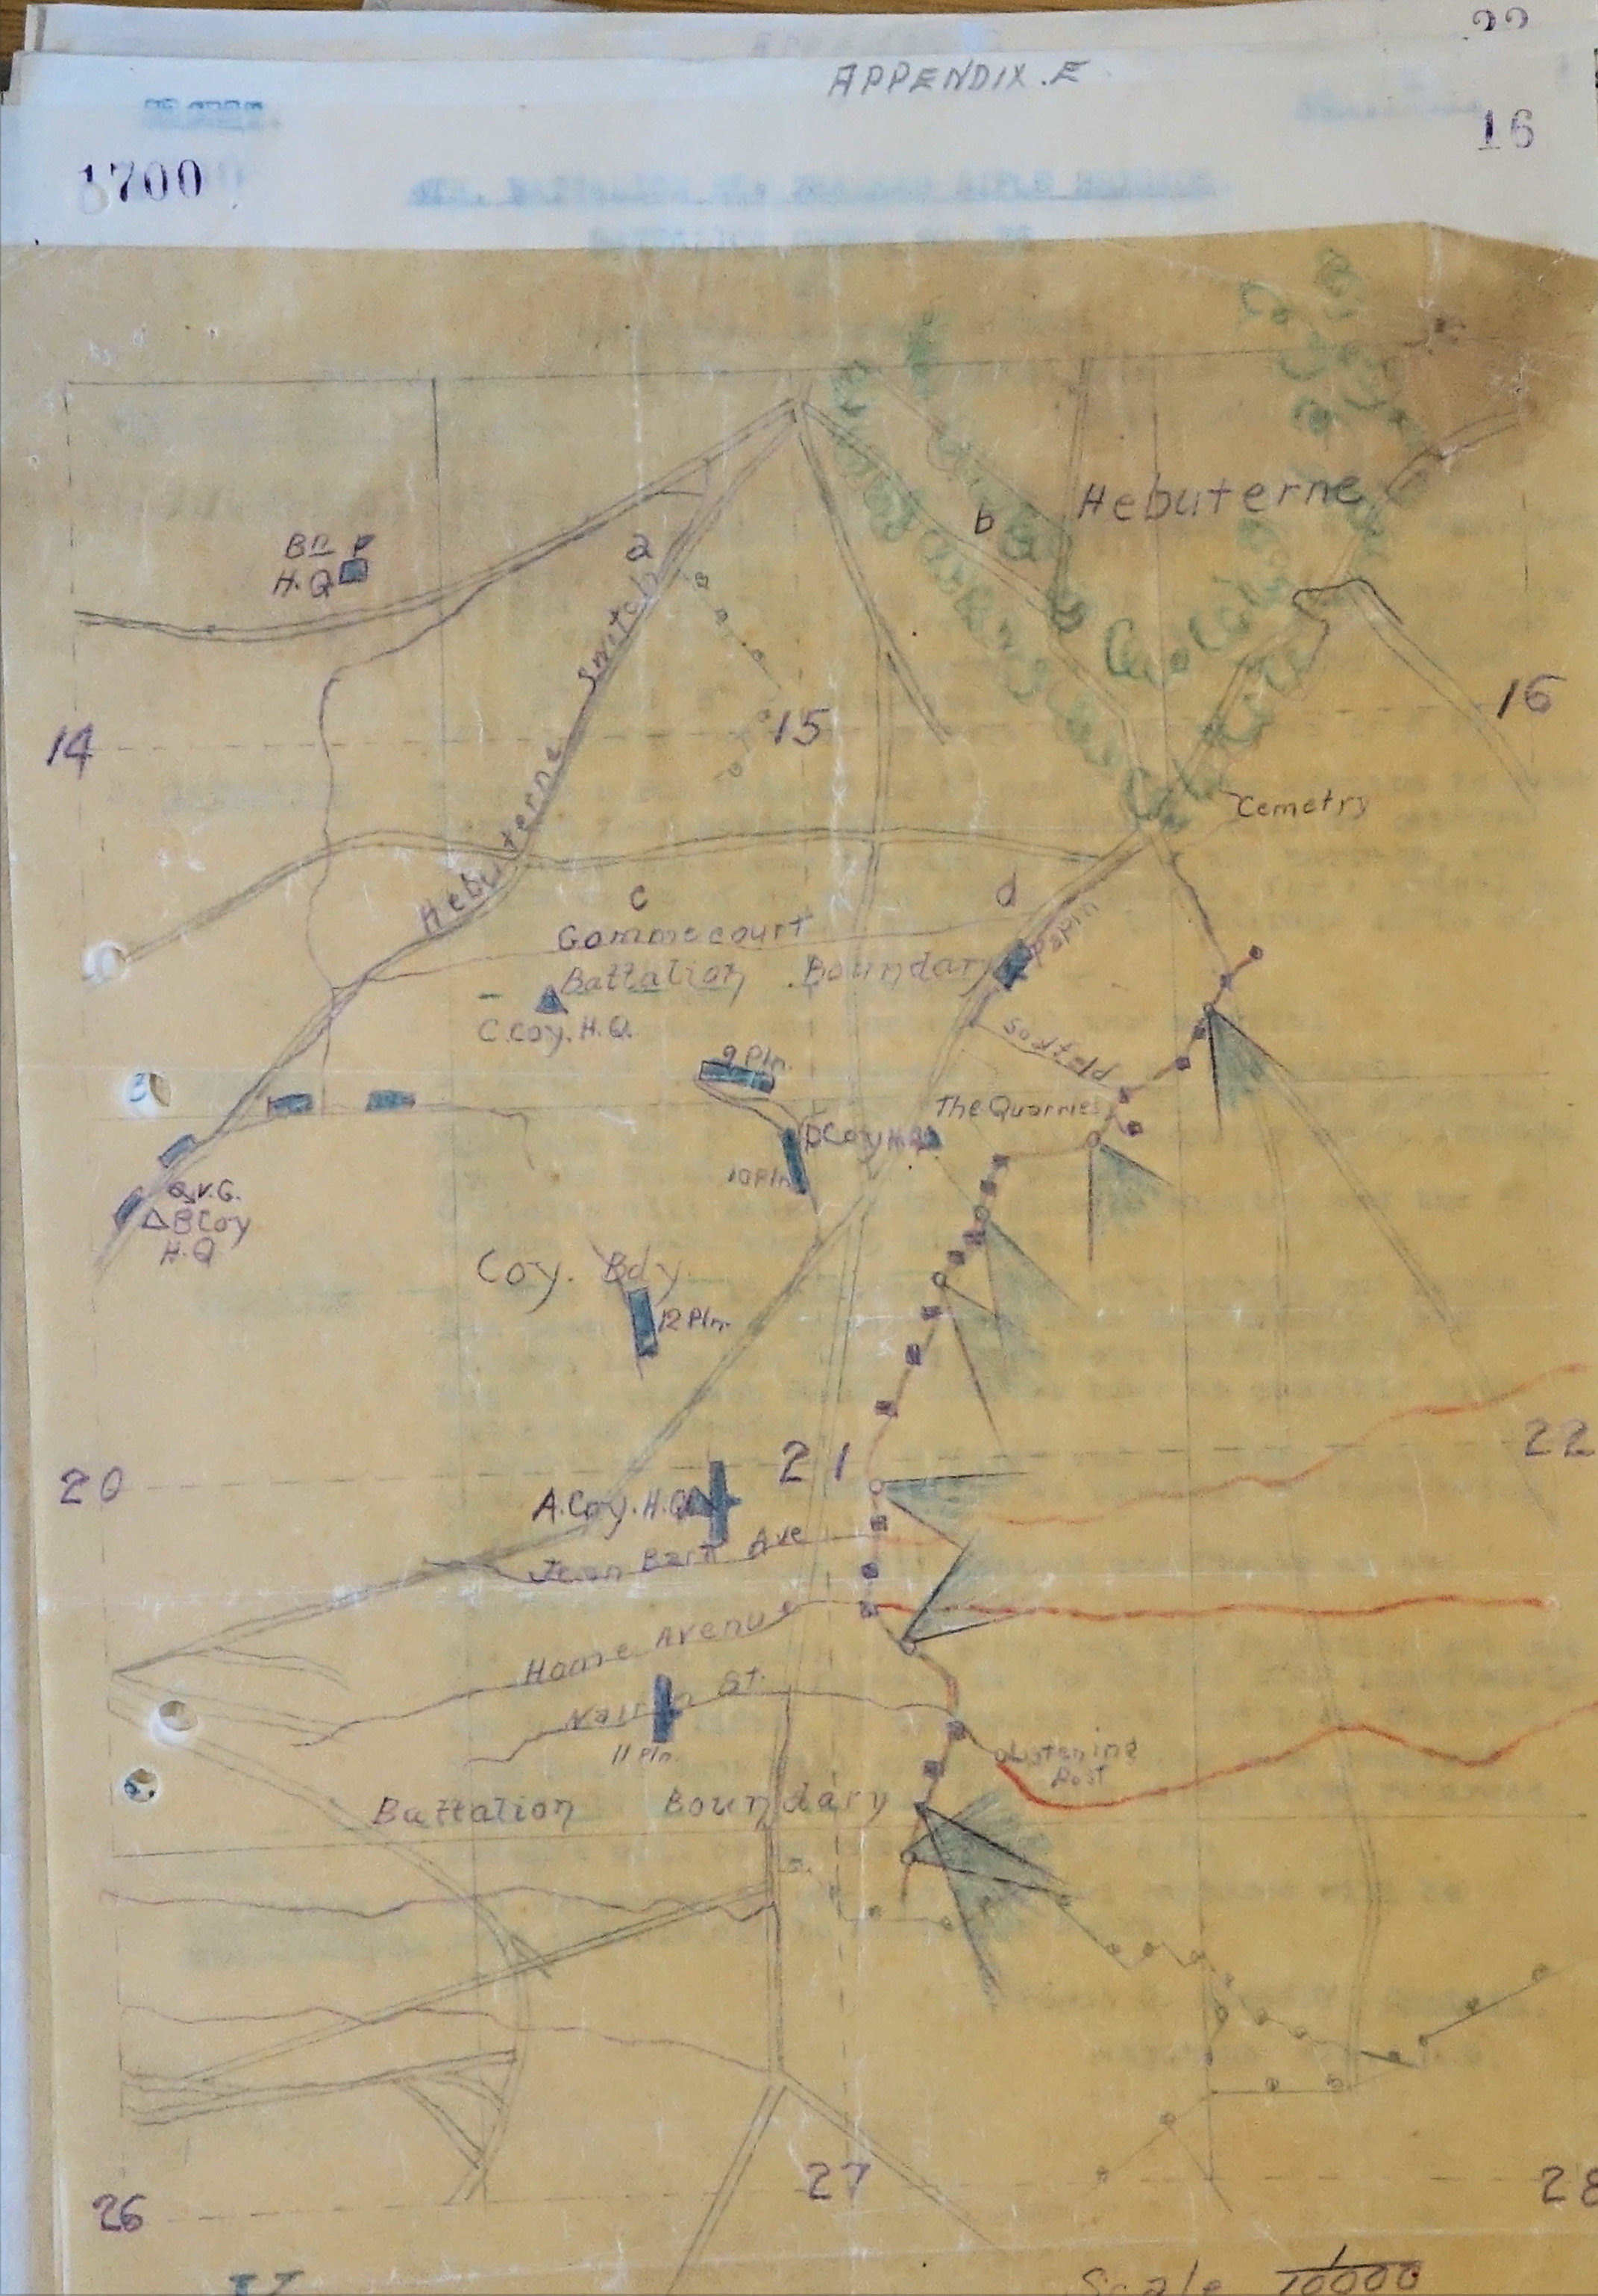 APPENDIX.E
16
1700
Hebuterne
b
a
Bn
H.Q
Hebuterne Switch
15
16
14
Cemetry
c
d
Gommecourt
Papin
Battalion Boundary
C.Coy.H.Q.
9 Pln.
The Quarries
D Coy H.Q
10 Pln.
Q.V.G.
B Coy
H.Q
Coy. Bdy.
12 Pln.
21
22
20
A.Coy.H.Q
Jean Bart Ave
Home Avenue
Nairn St.
11 Pln.
Listening
Post
Battalion Boundary
27
28
26
Scale 1/10000